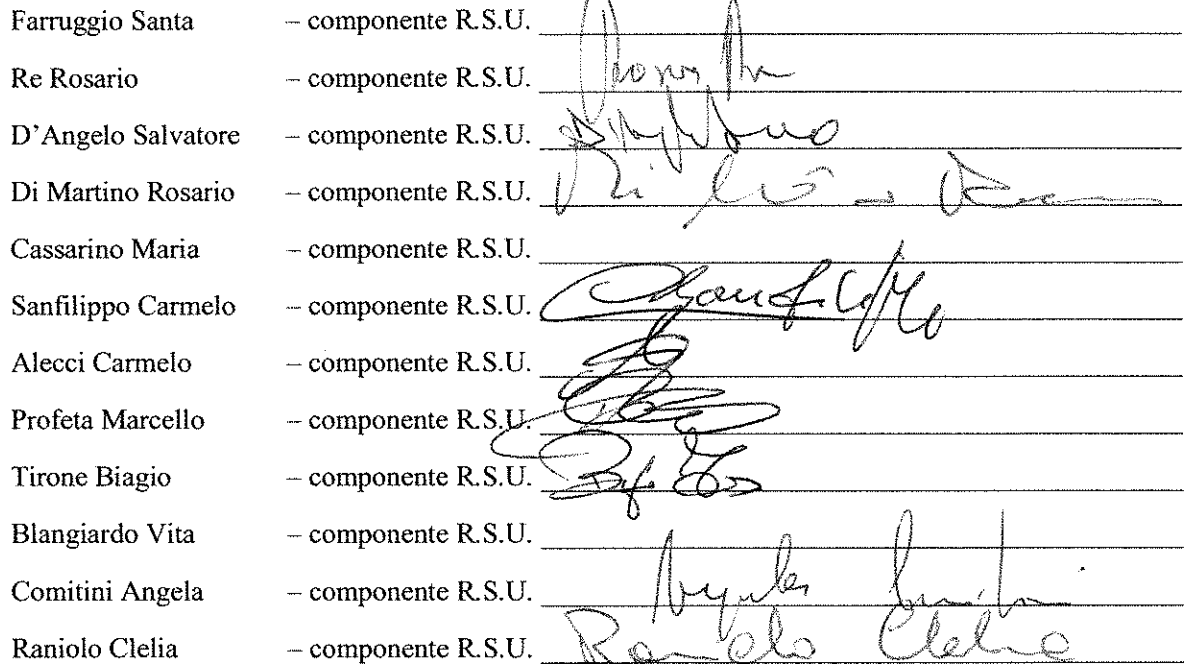 Farruggio Santa – componente R.S.U.
Re Rosario – componente R.S.U.
D'Angelo Salvatore – componente R.S.U.
Di Martino Rosario – componente R.S.U.
Cassarino Maria – componente R.S.U.
Sanfilippo Carmelo – componente R.S.U.
Alecci Carmelo – componente R.S.U.
Profeta Marcello – componente R.S.U.
Tirone Biagio – componente R.S.U.
Blangiardo Vita – componente R.S.U.
Comitini Angela – componente R.S.U.
Raniolo Clelia – componente R.S.U. Raniolo Clelia